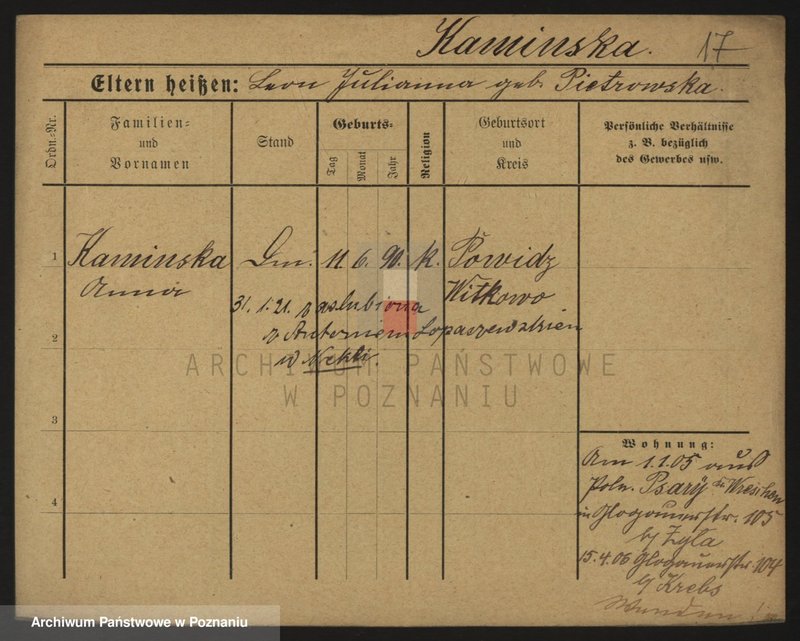 Kaminska. 17
Eltern heißen: Leon Julianna geb. Pietrowska.
Ordn.-Nr.
Familien- und Vornamen
Stand
Geburts-
Tag
Monat
Jahr
Religion
Geburtsort und Kreis
Persönliche Verhältnisse
z. B. bezüglich
des Gewerbes usw.
1 Kaminska 11 6. 90. k. Powidz
Anna Witkowo
31.1.21. zaslubiona
2 z Antoniem Lopaczewskim
w Nekli.
3
4
Wohnung:
Am 1.1.05 aus
Poln. Psary Kr. Wreschen
in Glogauerstr. 105
b/ Zyla
15.4.06 Glogauerstr. 104
b/ Krebs
ARCHIWUM PAŃSTWOWE
W POZNANIU
Archiwum Państwowe w Poznaniu